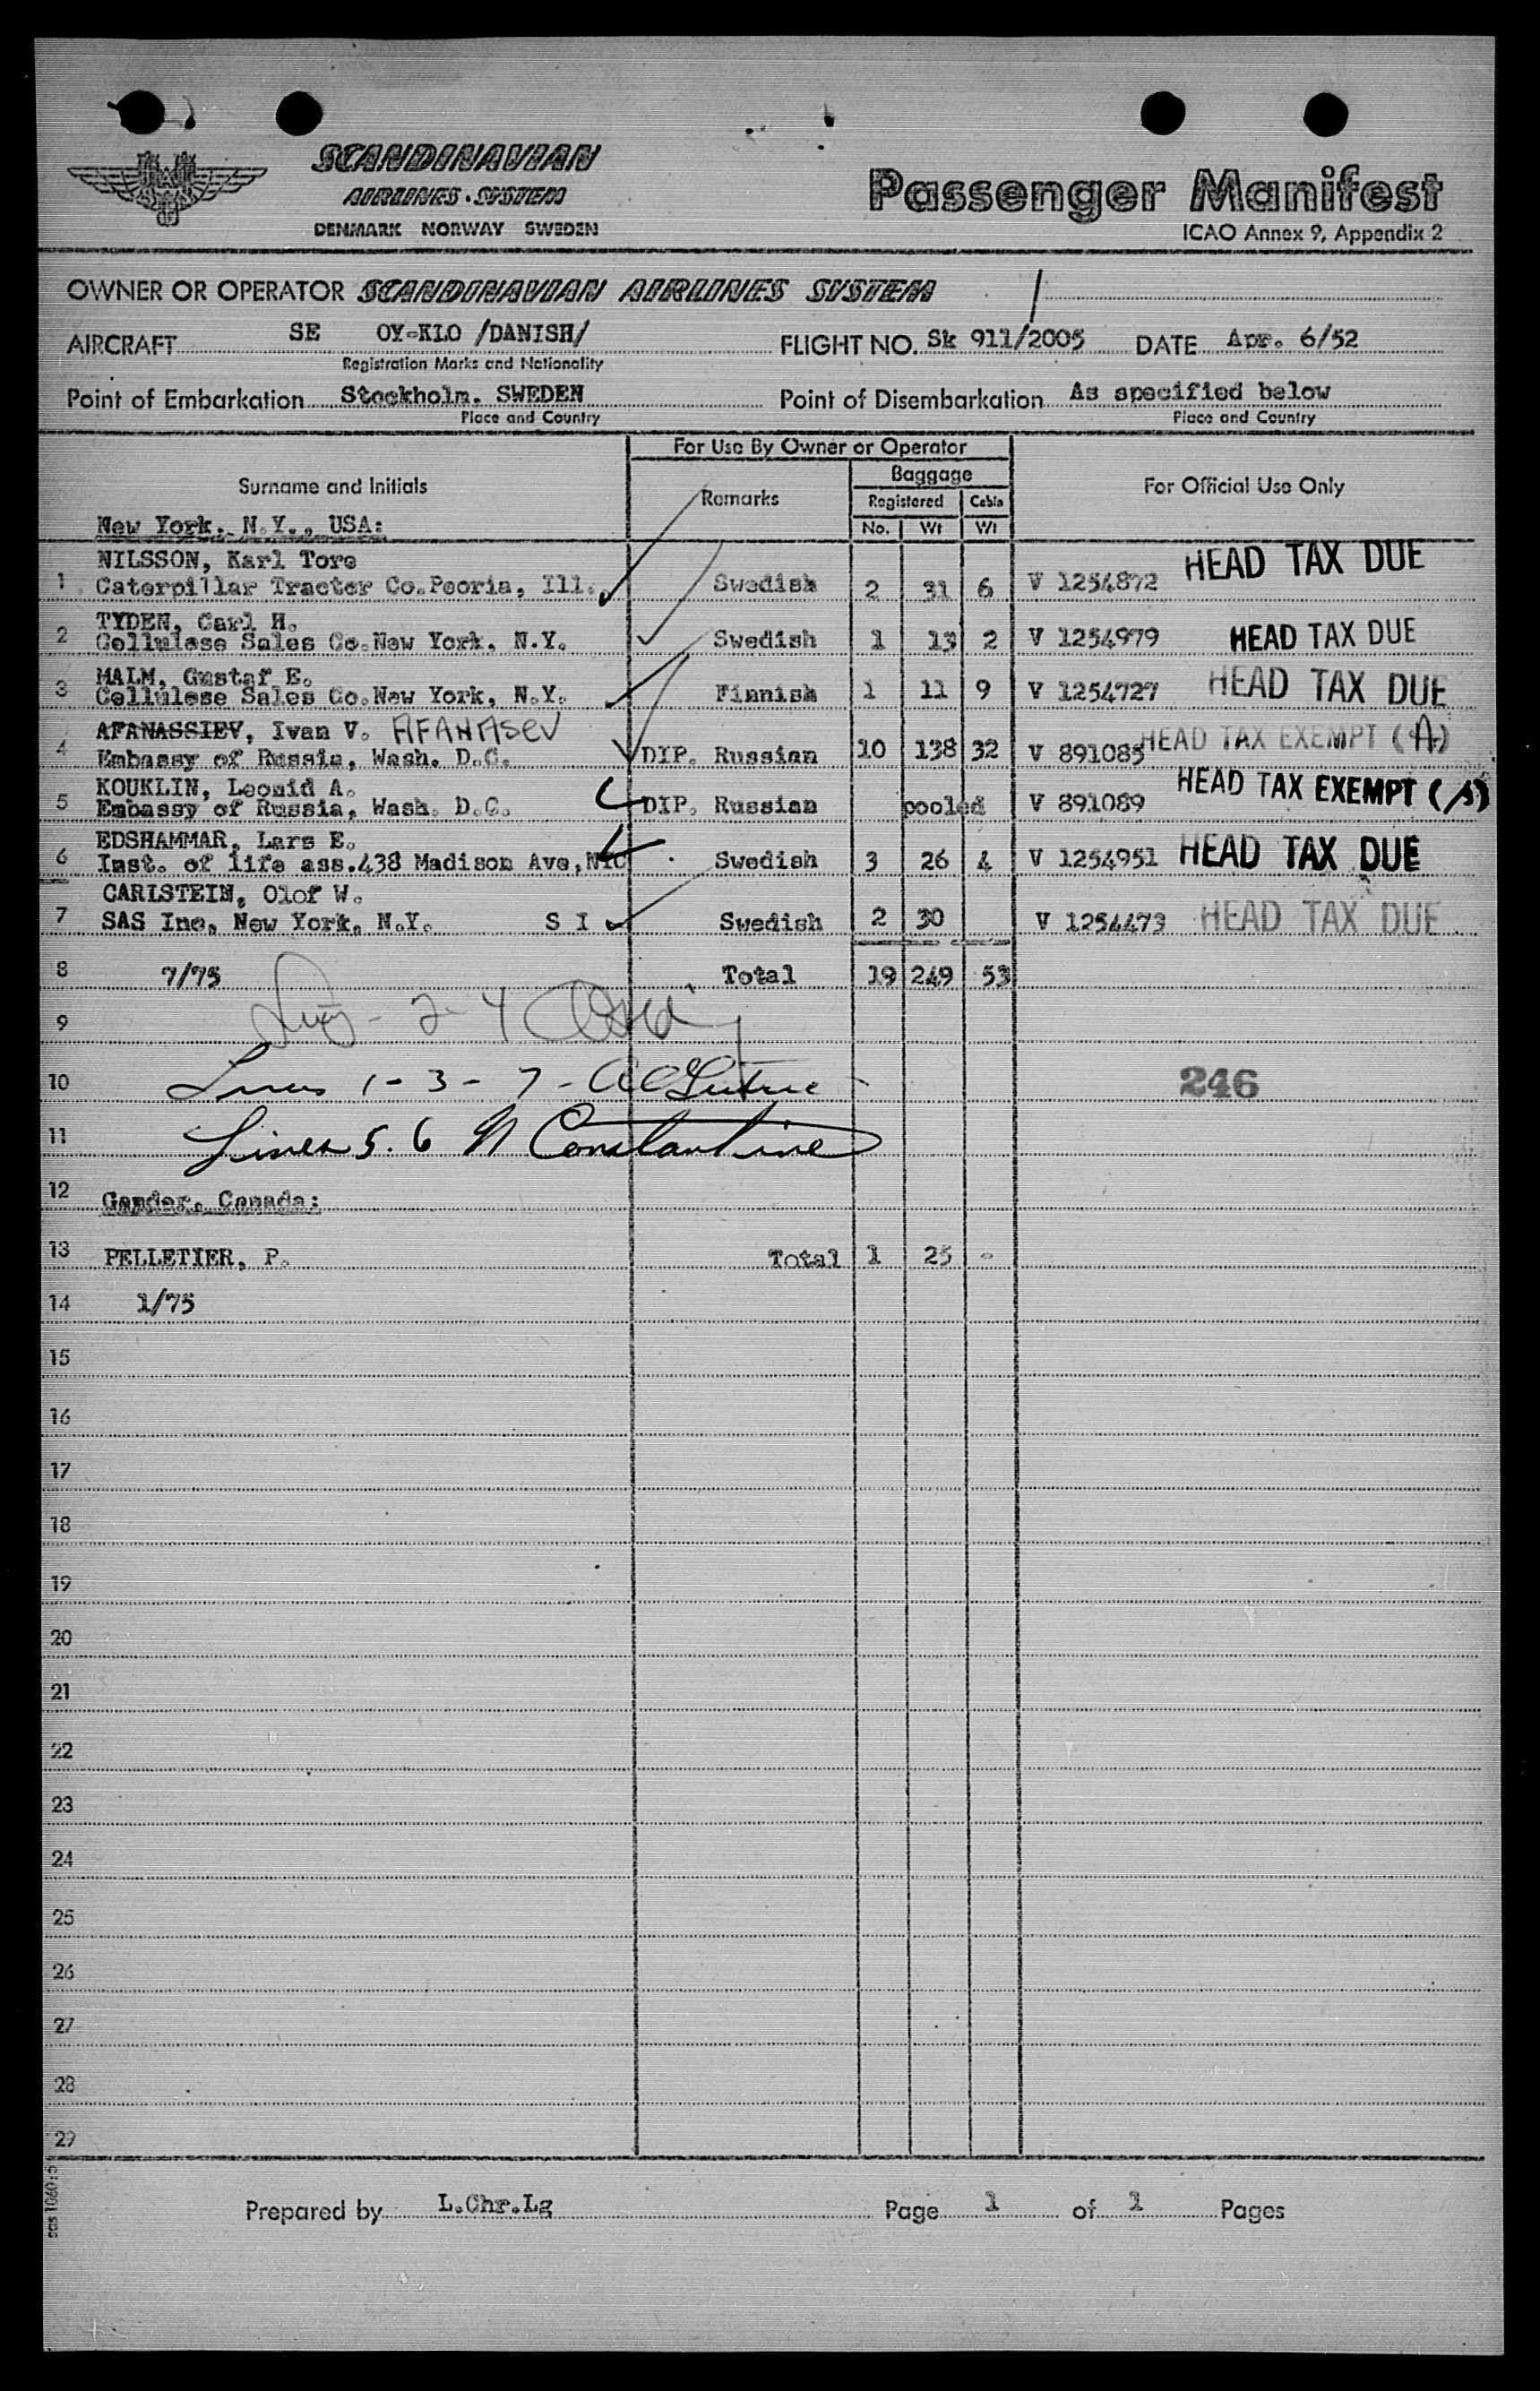 SCANDINAVIAN
AIRLINES SYSTEM
DENMARK NORWAY SWEDEN
Passenger Manifest
ICAO Annex 9, Appendix 2
OWNER OR OPERATOR SCANDINAVIAN AIRLINES SYSTEM
AIRCRAFT SE OY-KLO /DANISH/ FLIGHT NO. Sk 911/2005 DATE Apr. 6/52
Registration Marks and Nationality
Point of Embarkation Stockholm. SWEDEN Point of Disembarkation As specified below
Place and Country Place and Country
For Use By Owner or Operator
Surname and Initials Remarks Baggage For Official Use Only
Registered Cabin
No. Wt Wt
New York, N.Y., USA:
NILSSON, Karl Tore
1 Caterpillar Tractor Co.Peoria, Ill. Swedish 2 31 6 V 1254872 HEAD TAX DUE
TYDEN, Carl H.
2 Cellulose Sales Co.New York, N.Y. Swedish 1 13 2 V 1254979 HEAD TAX DUE
MALM, Gustaf E.
3 Cellulose Sales Co.New York, N.Y. Finnish 1 11 9 V 1254727 HEAD TAX DUE
AFANASSIEV, Ivan V. AFANASEV
4 Embassy of Russia, Wash. D.C. DIP. Russian 10 138 32 V 891085 HEAD TAX EXEMPT (A)
KOUKLIN, Leonid A.
5 Embassy of Russia, Wash. D.C. DIP. Russian pooled V 891089 HEAD TAX EXEMPT (A)
EDSHAMMAR, Lars E.
6 Inst. of life ass.438 Madison Ave,NYC Swedish 3 26 4 V 1254951 HEAD TAX DUE
CARLSTEIN, Olof W.
7 SAS Inc, New York, N.Y. S I Swedish 2 30 V 1254473 HEAD TAX DUE
8 7/75 Total 19 249 53
9 2-4
10 Lines 1-3-7- 246
11 Lines 5.6 N Constantine
12 Gander, Canada:
13 PELLETIER, P. Total 1 25 -
14 1/75
15
16
17
18
19
20
21
22
23
24
25
26
27
28
29
sas 1060:5
Prepared by L.Chr.Lg Page 1 of 1 Pages